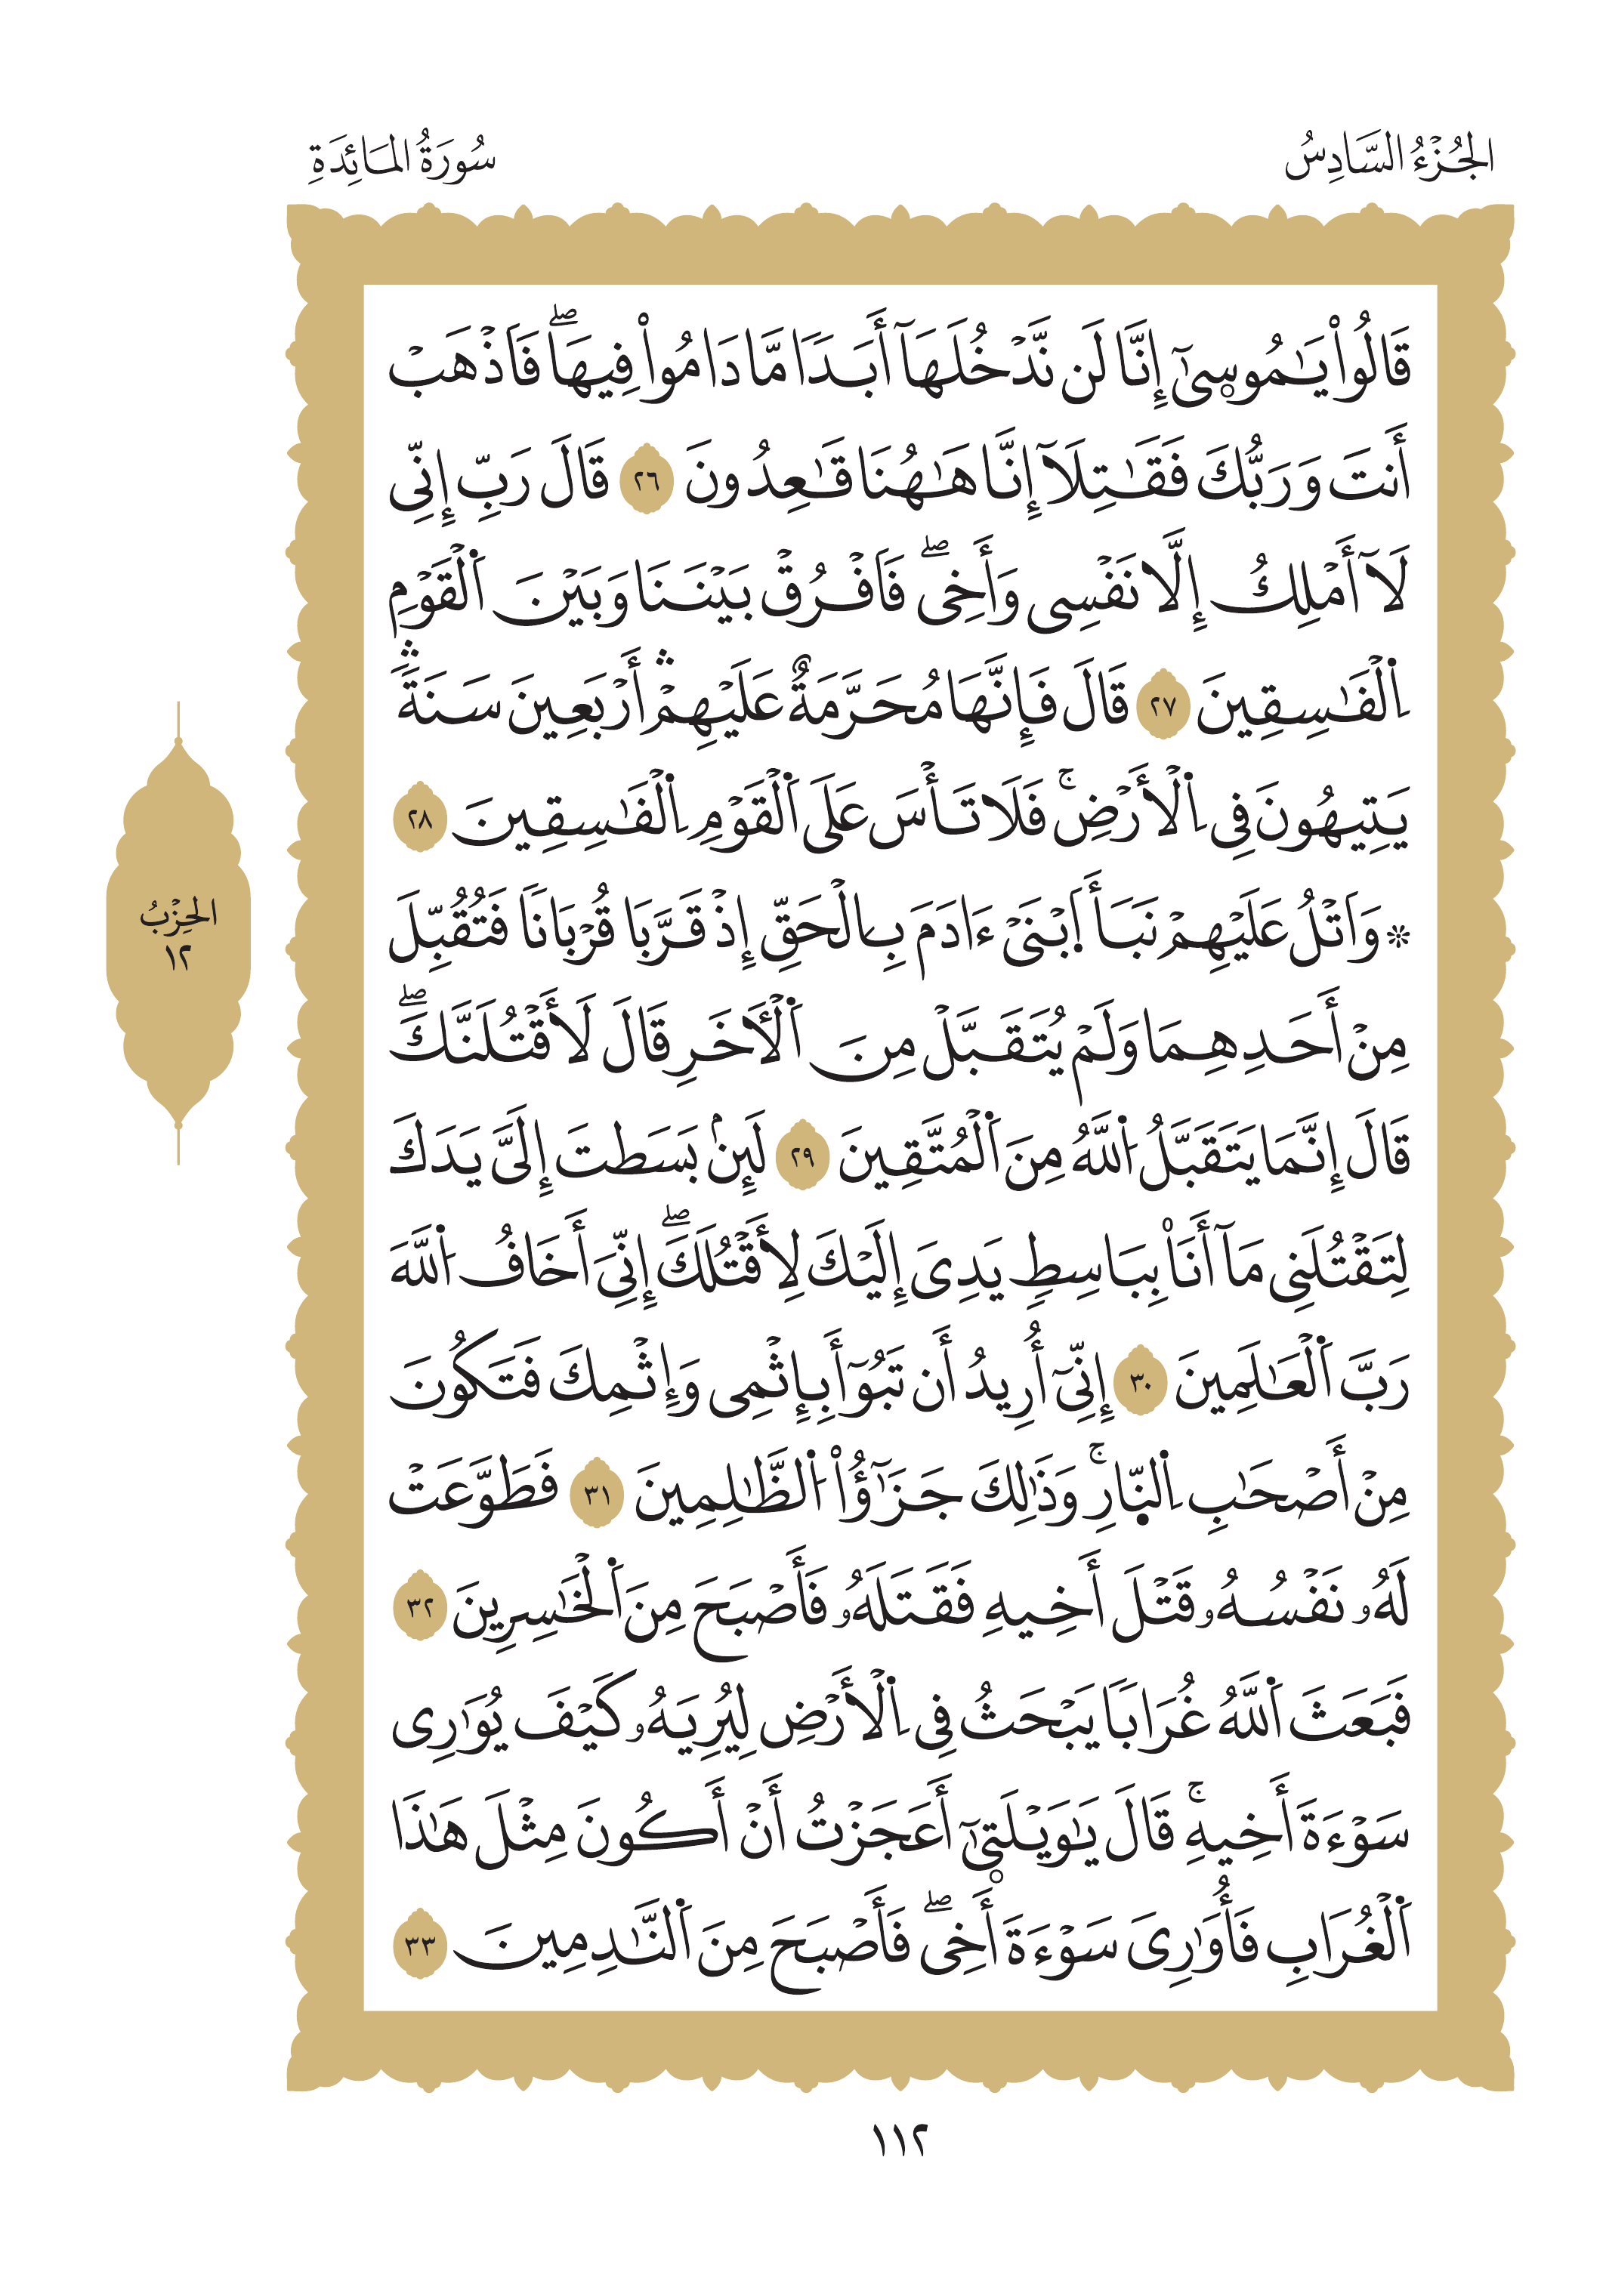 الجُزْءُ السَّادِسُ
سُورَةُ المَائِدَةِ
قَالُواْ يَٰمُوسِىٰٓ إِنَّا لَن نَّدْخُلَهَآ أَبَدٗا مَّا دَامُواْ فِيهَاۖ فَاَذْهَبْ
أَنتَ وَرَبُّكَ فَقَٰتِلَآ إِنَّا هَٰهُنَا قَٰعِدُونَ ٢٦ قَالَ رَبِّ إِنِّى
لَآ أَمْلِكُ إِلَّا نَفْسِى وَأَخِىۖ فَاَفْرُقْ بَيْنَنَا وَبَيْنَ اَ۬لْقَوْمِ
اِ۬لْفَٰسِقِينَ ٢٧ قَالَ فَإِنَّهَا مُحَرَّمَةٌ عَلَيْهِمْۛ أَرْبَعِينَ سَنَةٗۛ
يَتِيهُونَ فِى اِ۬لْأَرْضِۚ فَلَا تَأْسَ عَلَى اَ۬لْقَوْمِ اِ۬لْفَٰسِقِينَ ٢٨
۞ وَاَتْلُ عَلَيْهِمْ نَبَأَ اَ۪بْنَىْ ءَادَمَ بِالْحَقِّ إِذْ قَرَّبَا قُرْبَانٗا فَتُقُبِّلَ
مِنْ أَحَدِهِمَا وَلَمْ يُتَقَبَّلْ مِنَ اَ۬لْأٓخَرِ قَالَ لَأَقْتُلَنَّكَۖ
قَالَ إِنَّمَا يَتَقَبَّلُ اُ۬للَّهُ مِنَ اَ۬لْمُتَّقِينَ ٢٩ لَئِنۢ بَسَطتَ إِلَىَّ يَدَكَ
لِتَقْتُلَنِى مَآ أَنَا۠ بِبَاسِطٍ يَدِىَ إِلَيْكَ لِأَقْتُلَكَۖ إِنِّىَ أَخَافُ اُ۬للَّهَ
رَبَّ اَ۬لْعَٰلَمِينَ ٣٠ إِنِّىٓ أُرِيدُ أَن تَبُوٓأَ بِإِثْمِى وَإِثْمِكَ فَتَكُونَ
مِنْ أَصْحَٰبِ اِ۬لنّ۪ارِۚ وَذَٰلِكَ جَزَٰٓؤُاْ اُ۬لظَّٰلِمِينَ ٣١ فَطَوَّعَتْ
لَهُۥ نَفْسُهُۥ قَتْلَ أَخِيهِ فَقَتَلَهُۥ فَأَصْبَحَ مِنَ اَ۬لْخَٰسِرِينَ ٣٢
فَبَعَثَ اَ۬للَّهُ غُرَابٗا يَبْحَثُ فِى اِ۬لْأَرْضِ لِيُرِيَهُۥ كَيْفَ يُوَٰرِى
سَوْءَةَ أَخِيهِۚ قَالَ يَٰوَيْلَتِىٰٓ أَعَجَزْتُ أَنْ أَكُونَ مِثْلَ هَٰذَا
اَ۬لْغُرَابِ فَأُوَٰرِىَ سَوْءَةَ أَخِىۖ فَأَصْبَحَ مِنَ اَ۬لنَّٰدِمِينَ ٣٣
الحِزْبُ
١٢
١١٢